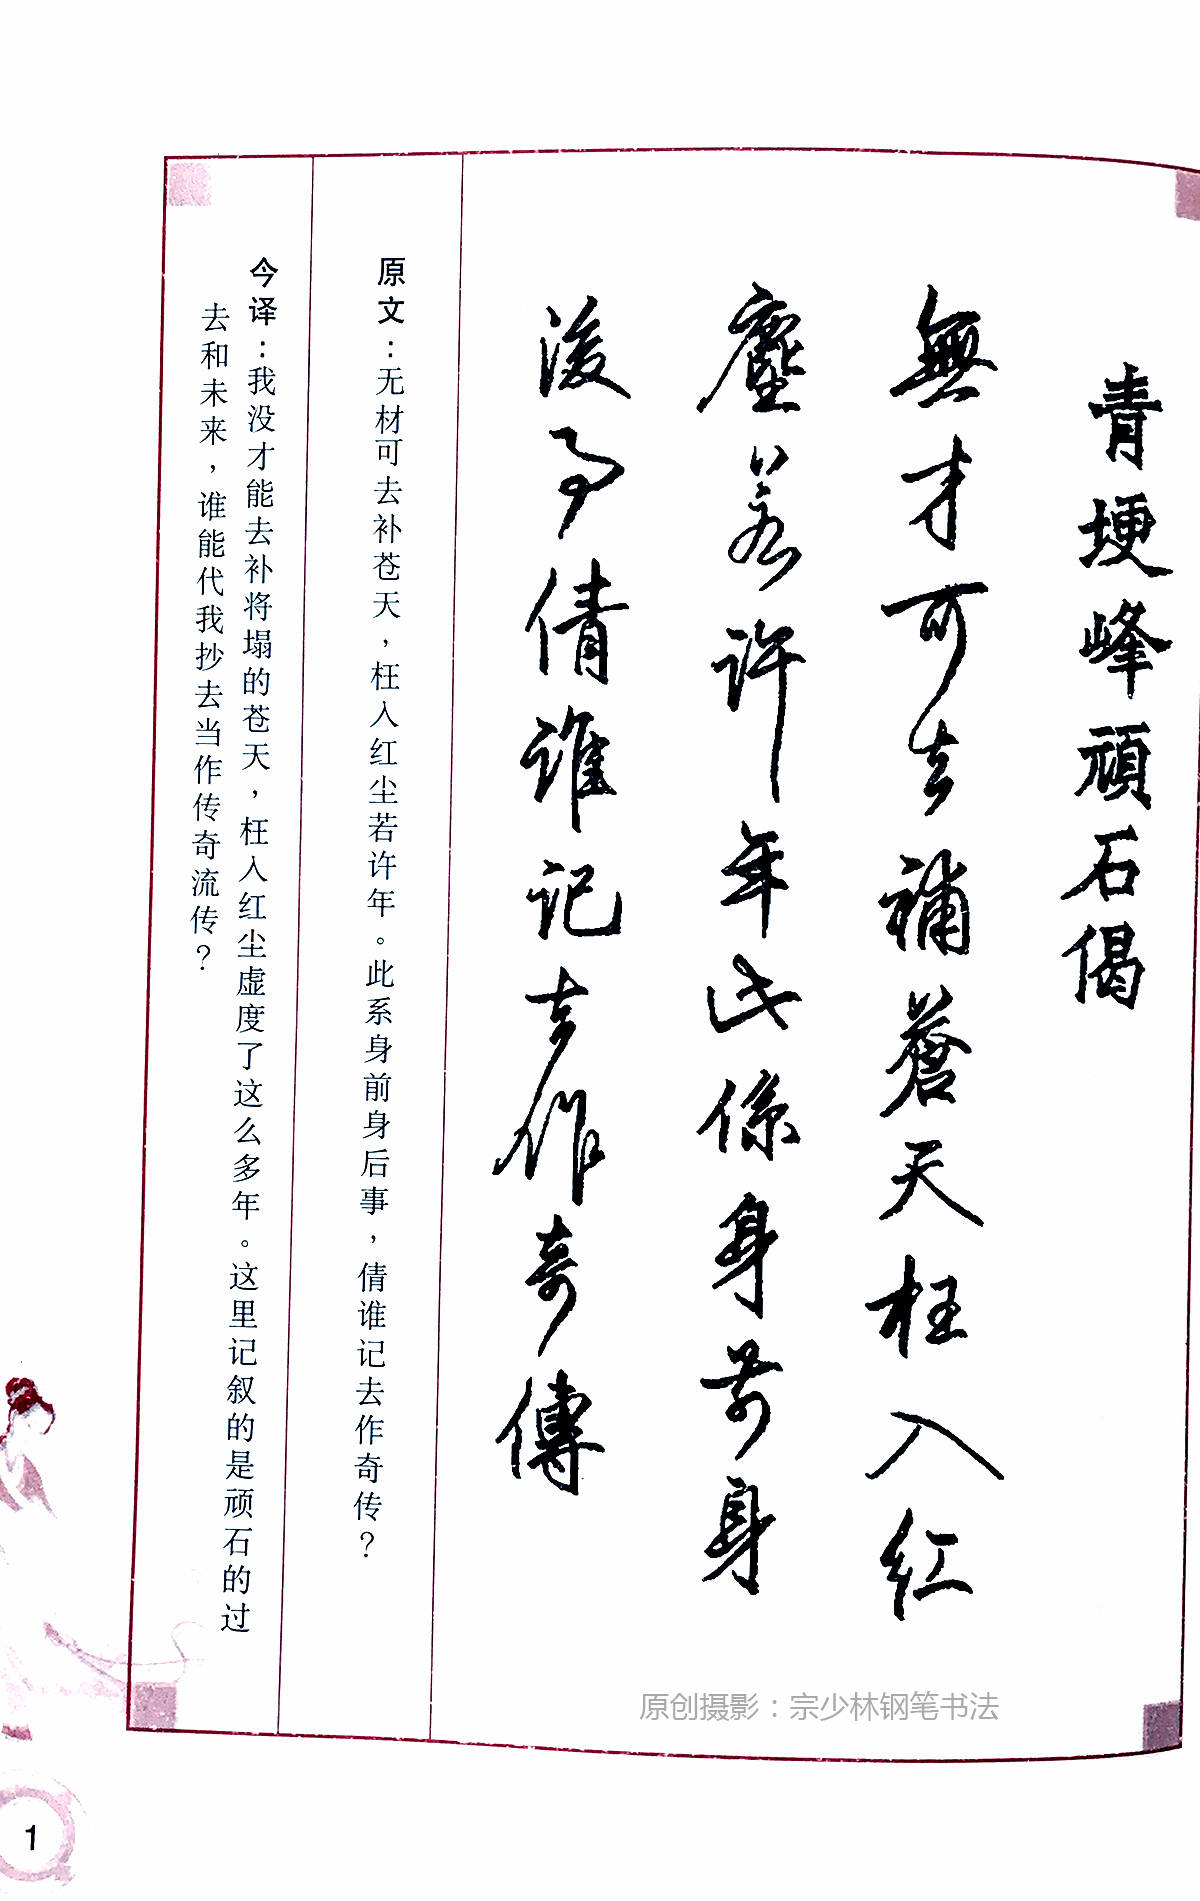 青埂峰頑石偈
無才可去補蒼天枉入紅
塵若許年此係身前身
後事倩誰記去作奇傳
原文：无材可去补苍天，枉入红尘若许年。此系身前身后事，倩谁记去作奇传？
今译：我没才能去补将塌的苍天，枉入红尘虚度了这么多年。这里记叙的是顽石的过
去和未来，谁能代我抄去当作传奇流传？
原创摄影：宗少林钢笔书法
1